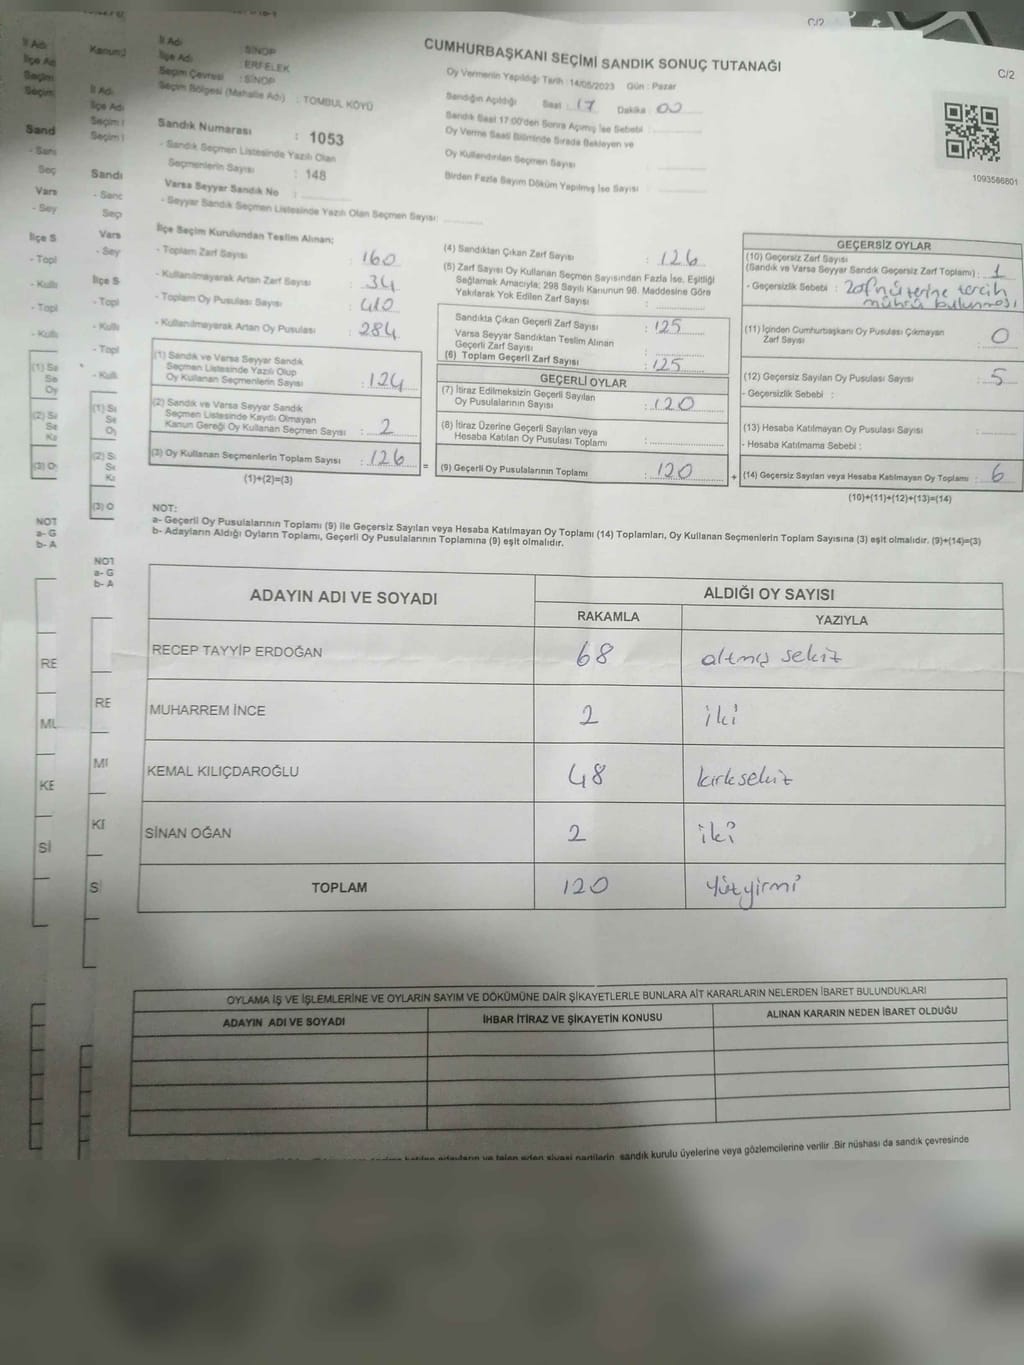 C/2
CUMHURBAŞKANI SEÇİMİ SANDIK SONUÇ TUTANAĞI
C/2
İl Adı : SİNOP
İlçe Adı : ERFELEK
Seçim Çevresi : SİNOP
Seçim Bölgesi (Mahalle Adı) : TOMBUL KÖYÜ
Oy Vermenin Yapıldığı Tarih : 14/05/2023 Gün : Pazar
Sandığın Açıldığı Saat : 17 Dakika : 00
Sandık Saat 17:00'den Sonra Açımış İse Sebebi :
Oy Verme Saati Bitiminde Sırada Bekleyen ve
Oy Kullandırılan Seçmen Sayısı :
Birden Fazla Sayım Döküm Yapılmış İse Sayısı :
1093586801
Sandık Numarası : 1053
- Sandık Seçmen Listesinde Yazılı Olan
Seçmenlerin Sayısı : 148
Varsa Seyyar Sandık No :
- Seyyar Sandık Seçmen Listesinde Yazılı Olan Seçmen Sayısı:
İlçe Seçim Kurulundan Teslim Alınan;
- Toplam Zarf Sayısı : 160
- Kullanılmayarak Artan Zarf Sayısı : 34
- Toplam Oy Pusulası Sayısı : 410
- Kullanılmayarak Artan Oy Pusulası : 284
(1) Sandık ve Varsa Seyyar Sandık
Seçmen Listesinde Yazılı Olup
Oy Kullanan Seçmenlerin Sayısı : 124
(2) Sandık ve Varsa Seyyar Sandık
Seçmen Listesinde Kayıtlı Olmayan
Kanun Gereği Oy Kullanan Seçmen Sayısı : 2
(3) Oy Kullanan Seçmenlerin Toplam Sayısı : 126
(1)+(2)=(3)
(4) Sandıktan Çıkan Zarf Sayısı : 126
(5) Zarf Sayısı Oy Kullanan Seçmen Sayısından Fazla İse, Eşitliği
Sağlamak Amacıyla; 298 Sayılı Kanunun 98. Maddesine Göre
Yakılarak Yok Edilen Zarf Sayısı :
Sandıkta Çıkan Geçerli Zarf Sayısı : 125
Varsa Seyyar Sandıktan Teslim Alınan
Geçerli Zarf Sayısı :
(6) Toplam Geçerli Zarf Sayısı : 125
GEÇERLİ OYLAR
(7) İtiraz Edilmeksizin Geçerli Sayılan
Oy Pusulalarının Sayısı : 120
(8) İtiraz Üzerine Geçerli Sayılan veya
Hesaba Katılan Oy Pusulası Toplamı :
= (9) Geçerli Oy Pusulalarının Toplamı : 120
GEÇERSİZ OYLAR
(10) Geçersiz Zarf Sayısı
(Sandık ve Varsa Seyyar Sandık Geçersiz Zarf Toplamı) : 1
- Geçersizlik Sebebi : Zarf üzerine tercih
mührü bulunması
(11) İçinden Cumhurbaşkanı Oy Pusulası Çıkmayan
Zarf Sayısı : 0
(12) Geçersiz Sayılan Oy Pusulası Sayısı : 5
- Geçersizlik Sebebi :
(13) Hesaba Katılmayan Oy Pusulası Sayısı :
- Hesaba Katılmama Sebebi :
+ (14) Geçersiz Sayılan veya Hesaba Katılmayan Oy Toplamı : 6
(10)+(11)+(12)+(13)=(14)
NOT:
a- Geçerli Oy Pusulalarının Toplamı (9) ile Geçersiz Sayılan veya Hesaba Katılmayan Oy Toplamı (14) Toplamları, Oy Kullanan Seçmenlerin Toplam Sayısına (3) eşit olmalıdır. (9)+(14)=(3)
b- Adayların Aldığı Oyların Toplamı, Geçerli Oy Pusulalarının Toplamına (9) eşit olmalıdır.
ADAYIN ADI VE SOYADI
ALDIĞI OY SAYISI
RAKAMLA YAZIYLA
RECEP TAYYİP ERDOĞAN 68 altmış sekiz
MUHARREM İNCE 2 iki
KEMAL KILIÇDAROĞLU 48 kırksekiz
SİNAN OĞAN 2 iki
TOPLAM 120 yüzyirmi
OYLAMA İŞ VE İŞLEMLERİNE VE OYLARIN SAYIM VE DÖKÜMÜNE DAİR ŞİKAYETLERLE BUNLARA AİT KARARLARIN NELERDEN İBARET BULUNDUKLARI
ADAYIN ADI VE SOYADI İHBAR İTİRAZ VE ŞİKAYETİN KONUSU ALINAN KARARIN NEDEN İBARET OLDUĞU
sandık kurulu üyelerine veya gözlemcilerine verilir .Bir nüshası da sandık çevresinde